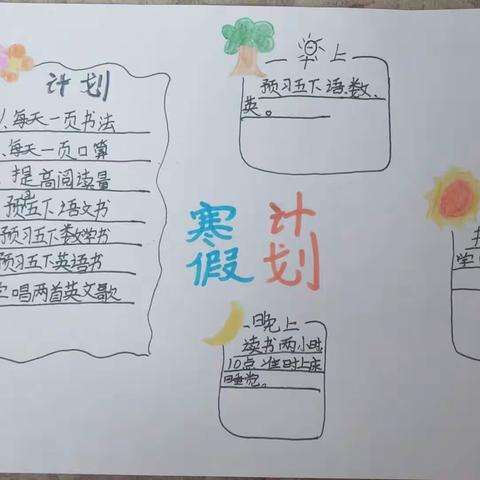 计划
、每天一页书法
、每天一页口算
、提高阅读量
预习五下语文书
预习五下数学书
预习五下英语书
唱两首英文歌
早上
预习五下语、数、
英。
寒假
计划
学
晚上
读书两小时
10点准时上床
睡觉。